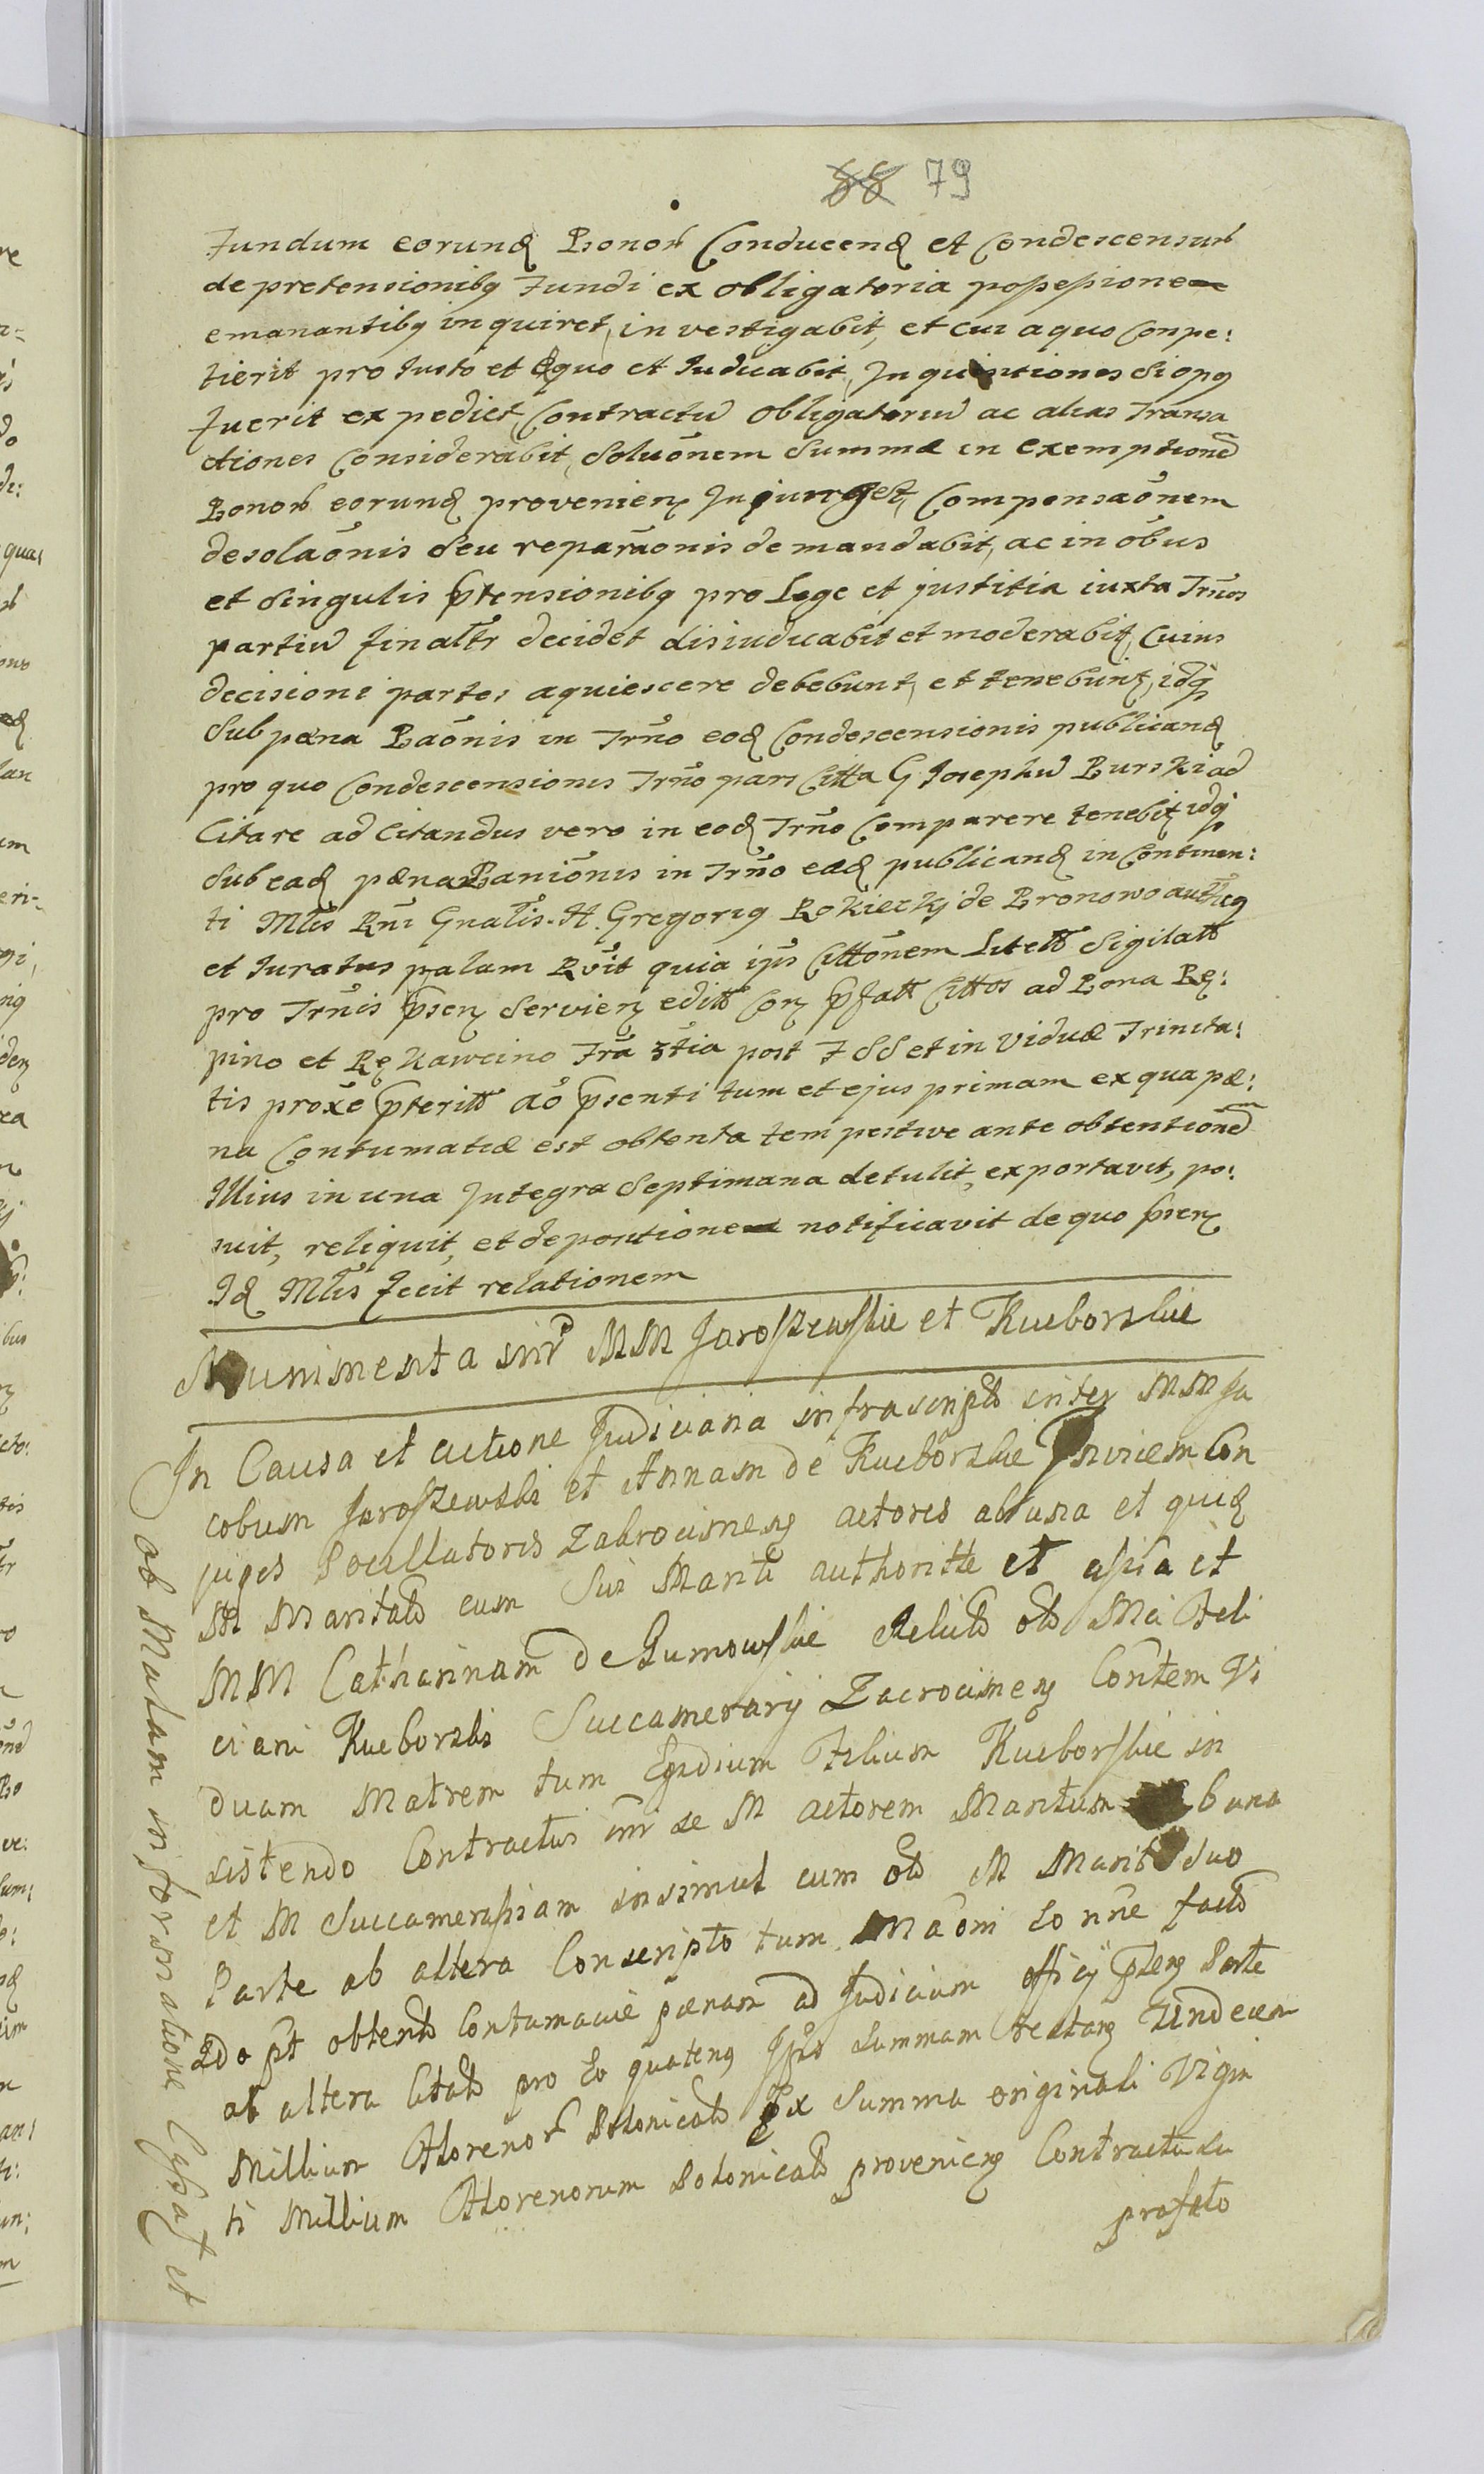 88 79
Fundum eorund Bonor Conducend et Condescensur
de pretensionibq Fundi ex obligatoria possessione
emanantibq inquiret, investigabit, et cui aquo Conpe:
tierit pro Iusto et Equo et Iudicabit, Inquisitiones si opq
fuerit expediet, Contractu obligatoriu ac alias Transa
ctiones Considerabit, Soluõnem Summæ in exemptione
Bonor eorund provenien Injunget, Compensaõnem
desolaõnis Seu reparaõnis demandabit, ac in õbus
et Singulis ptensionibq pro Lege et justitia iuxta Trnos
partiu finaltr decidet disiudicabit et moderabit, Cuius
decisioni partes aquiescere debebunt, et tenebunt, idq
Sub pæna Baõnis in Trno eod Condescensionis publicand
pro quo Condescensionis Trno pars Citta G Josephu Burski ad
Citare ad Citandus vero in eod Trno Comparere tenebit idq
Sub ead pæna Baniõnis in Trno eod publicand in Continen:
ti Mtis Rni Gnalis H. Gregoriq Rokiecki de Bronowo authcq
et Iuratus palam Rvit quia ijs Cittõnem Litett Sigilatt
pro Trnis psen Servien editt Con pfatt Cittos ad Bona Rę:
pino et Rękawcino Fra 3tia post F SS et in Viduæ Trinita:
tis proxe pteritt aõ psenti tum et ejus primam ex qua pæ:
na Contumatiæ est obtenta tempestive ante obtentione
Illius in una Integra Septimana detulit, exportavit, po:
suit, reliquit, et depositione notificavit de quo psen
Id Mtis fecit relationem
Munimenta intr MM Jaroszewskie et Kucborskie
In Causa et actione Judiciaria infrascripta inter MM Ja
cobum Jaroszewski et Annam de Kucborskie Conjuges
juges Pocillatores Zakrocimen actores ab una et quid
M Maritata cum Sui Mariti authoritte et assia et
MM Catharinam de Gumowskie Relicta olim Mci Feli
ciani Kucborski Succamerarij Zacrocimen Contem Vi
duam Matrem tum Egidium Filium Kucborskie in
sistendo Contractui intr se M actorem Maritum ab una
et M Succamerariam insimul cum olim M Marito Suo
Parte ab altera Conscripto tum Maõni eo nne facta
2do pt obtenta Contumaciæ pænam ad Judicium officij pten Parte
ab altera Citata pro Eo quatenq Ipsis Summam restan Undecim
Millium Florenor Polonicalium Ex Summa originali Vigin
ti Millium Florenorum Polonicalium provenien Contractu su
prafato
ob Malam informatione Cassat et